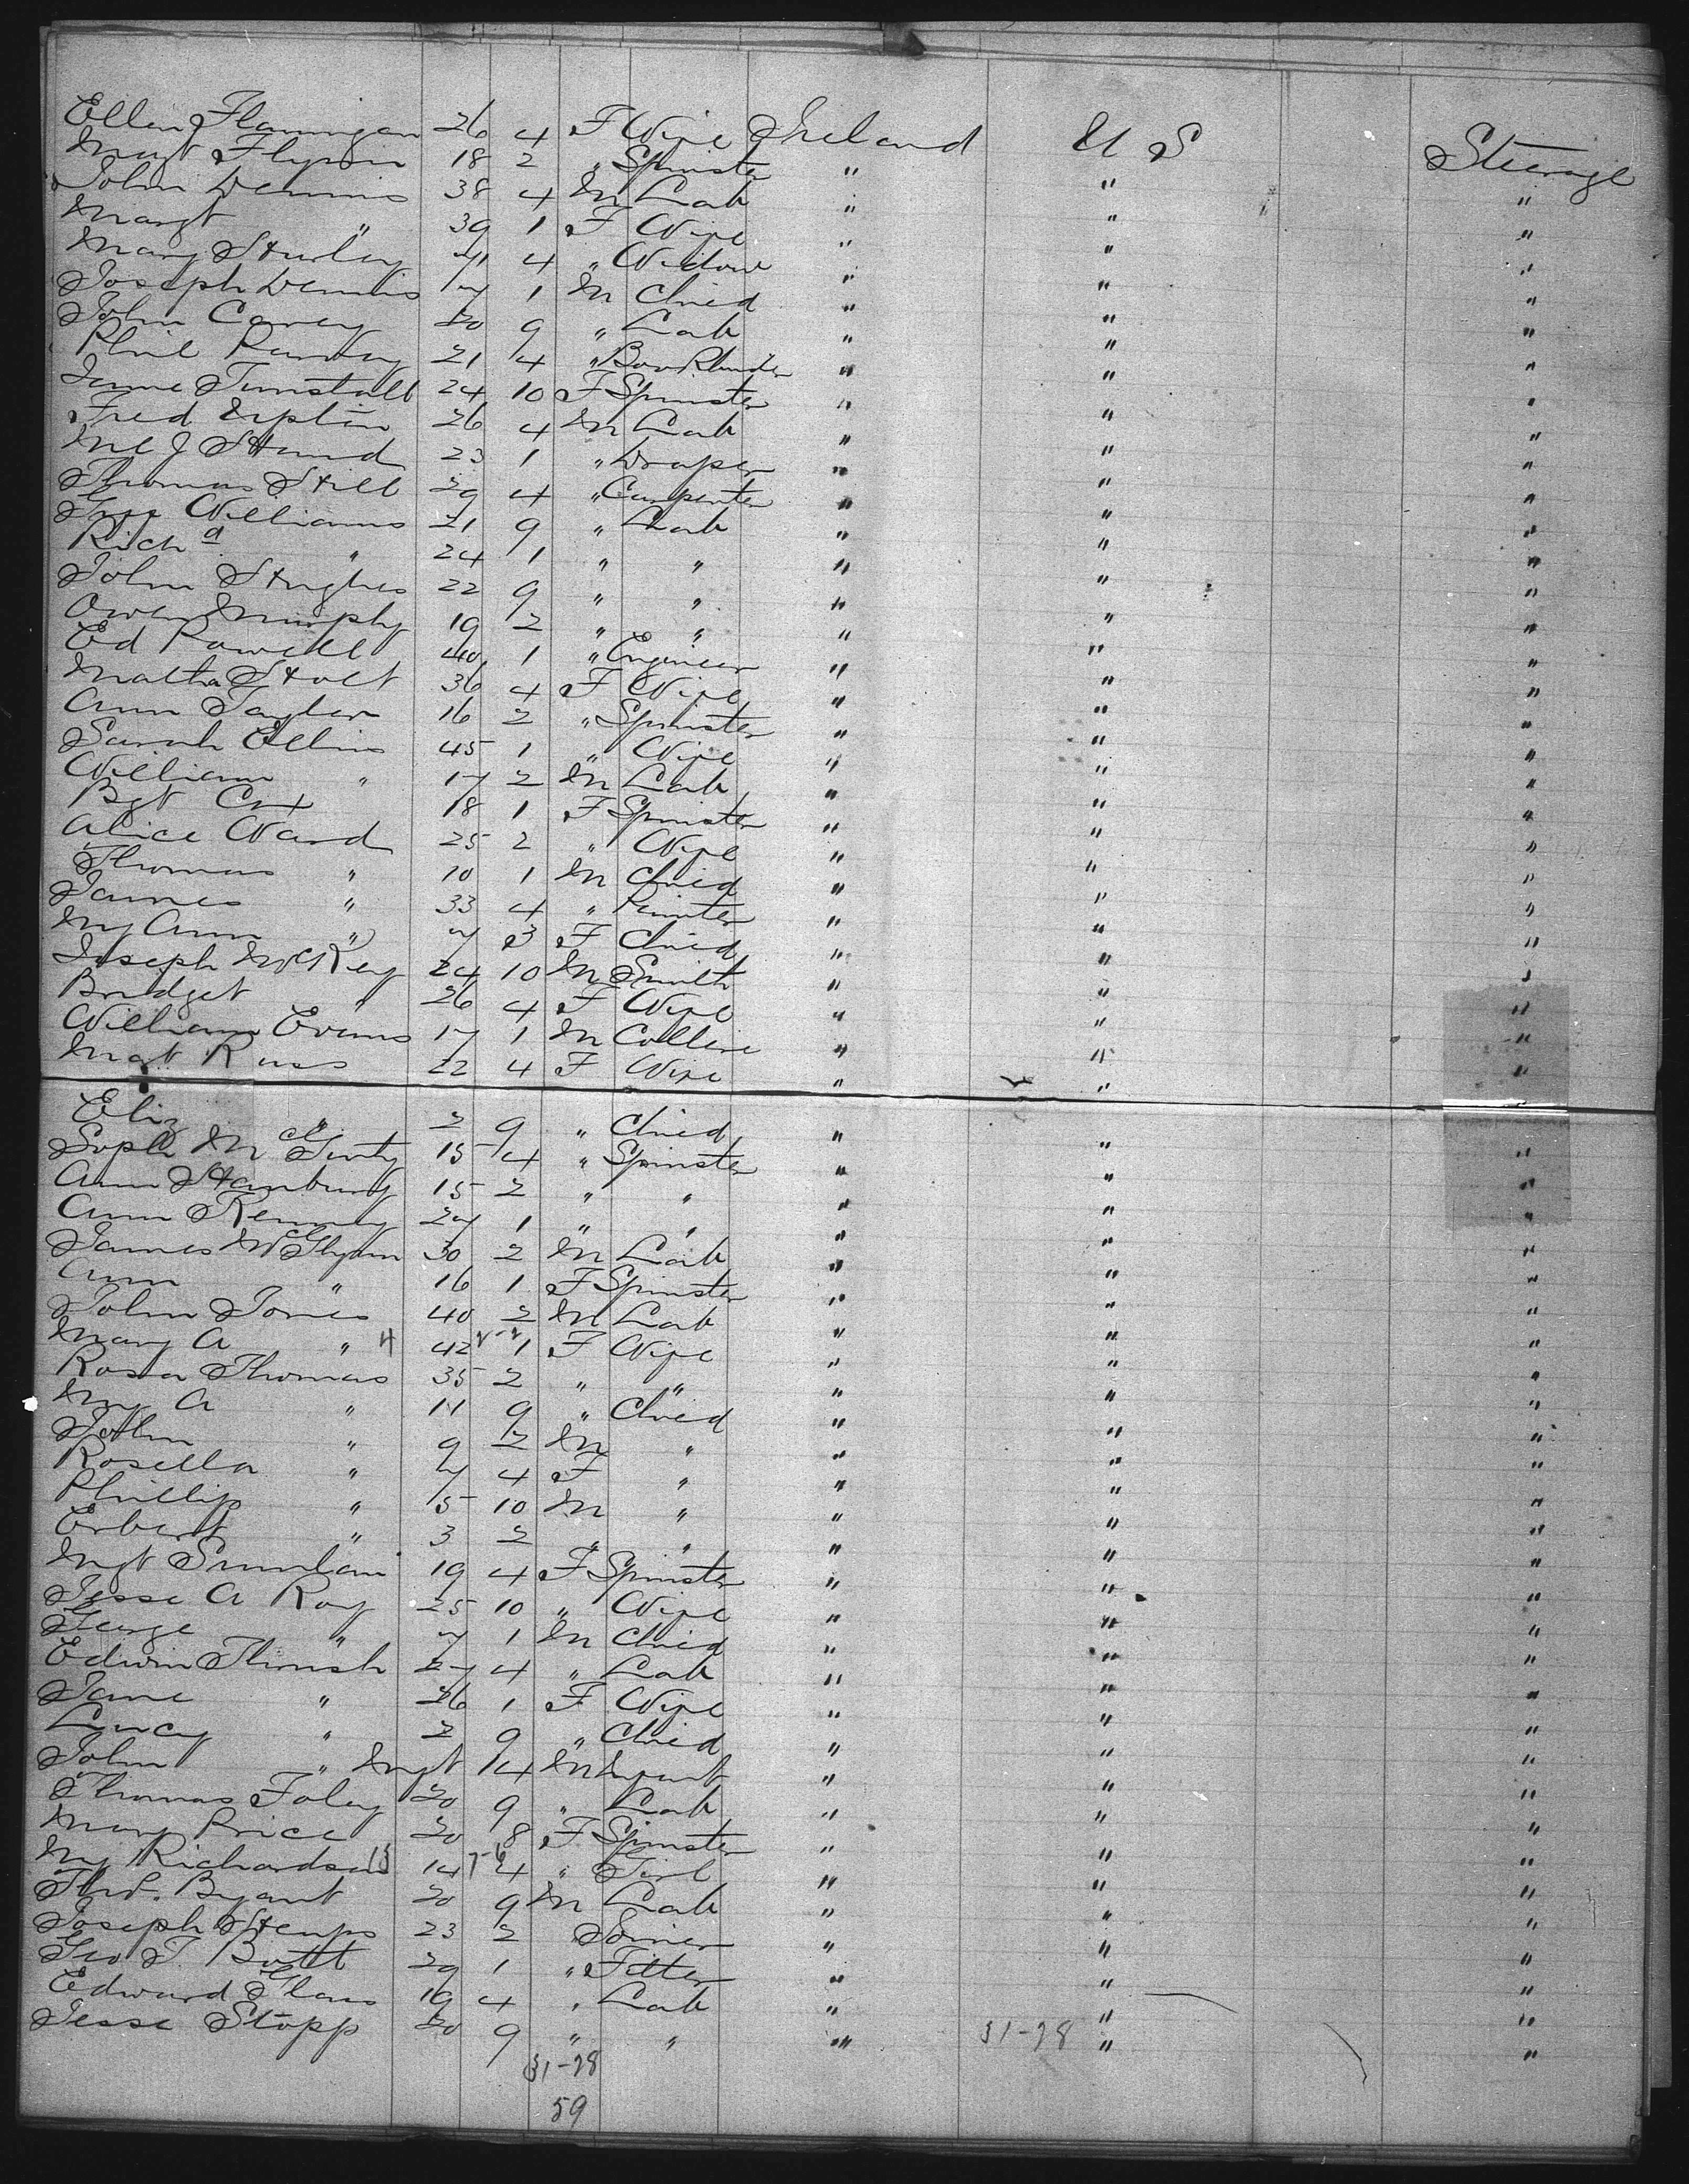 Ellen Flannigan 26 4 F Wife Ireland U S Steerage
Margt Flynn 18 2 " Spinster " " "
John Dennis 38 4 M Lab " " "
Margt " 39 1 F Wife " " "
Mary Hurley 71 4 " Widow " " "
Joseph Dennis 7 1 M Child " " "
John Carey 20 9 " Lab " " "
Phil 21 4 " Bookbinder " " "
Jane Tunstall 24 10 F Spinster " " "
Fred Upton 26 4 M Lab " " "
J Hand 23 1 " Draper " " "
Thomas Hill 29 4 " Carpenter " " "
Williams 21 9 " Lab " " "
Richd " 24 1 " " " " "
John Hughes 22 9 " " " " "
Owen Murphy 19 2 " " " " "
Ed Powell 40 1 " Engineer " " "
Martha Holt 36 4 F Wife " " "
Ann Taylor 16 2 " Spinster " " "
Sarah Ellins 45 1 " Wife " " "
William " 17 2 M Lab " " "
Bgt Cox 18 1 F Spinster " " "
Alice Ward 25 2 " Wife " " "
Thomas " 10 1 M Child " " "
James " 33 4 " Printer " " "
My Ann " 7 3 F Child " " "
Joseph McKey 24 10 M Smith " " "
Bridget " 26 4 F Wife " " "
William Evans 17 1 M Collier " " "
Mgt Russ 22 4 F Wife " " "
Eliz " 2 9 " Child " " "
Soph McGinty 15 4 " Spinster " " "
Ann Hanbury 15 2 " " " " "
Ann Kenney 27 1 " " " " "
James McGlynn 30 2 M Lab " " "
Ann " 16 1 F Spinster " " "
John Jones 40 2 M Lab " " "
Mary A " 42 1 F Wife " " "
Rosa Thomas 35 2 " " " " "
My A " 11 9 " Child " " "
John " 9 2 M " " " "
Rosella " 7 4 F " " " "
Phillip " 5 10 M " " " "
Erbert " 3 2 " " " " "
Mgt 19 4 F Spinster " " "
Jesse A Roy 25 10 " Wife " " "
George " 7 1 M Child " " "
Edwin Thrush 27 4 " Lab " " "
Jane " 26 1 F Wife " " "
Lucy " 2 9 " Child " " "
John " 4 M Infant " " "
Thomas Foley 20 9 " Lab " " "
Mary Price 20 8 F Spinster " " "
My Richardson 14 4 " Girl " " "
Thos. Bryant 20 9 M Lab " " "
Joseph Hemps 23 2 Joiner " " "
Geo T. Butt 29 1 " Fitter " " "
Edward Glass 19 4 " Lab " " "
Jesse Stopp 20 9 " " " 31-28 " "
31-28
59